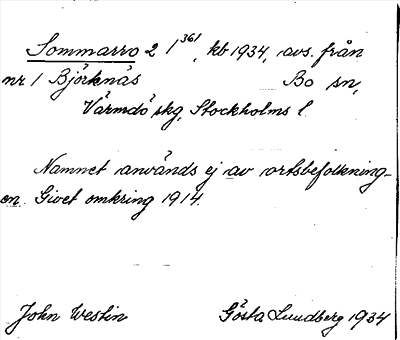 Sommarro 2 1³⁶¹, kb 1934, avs. från
nr 1 Björknäs Bo sn,
Värmdö skg, Stockholms l.
Namnet används ej av ortsbefolkning-
en. Givet omkring 1914.
John Westin Gösta Lundberg 1934